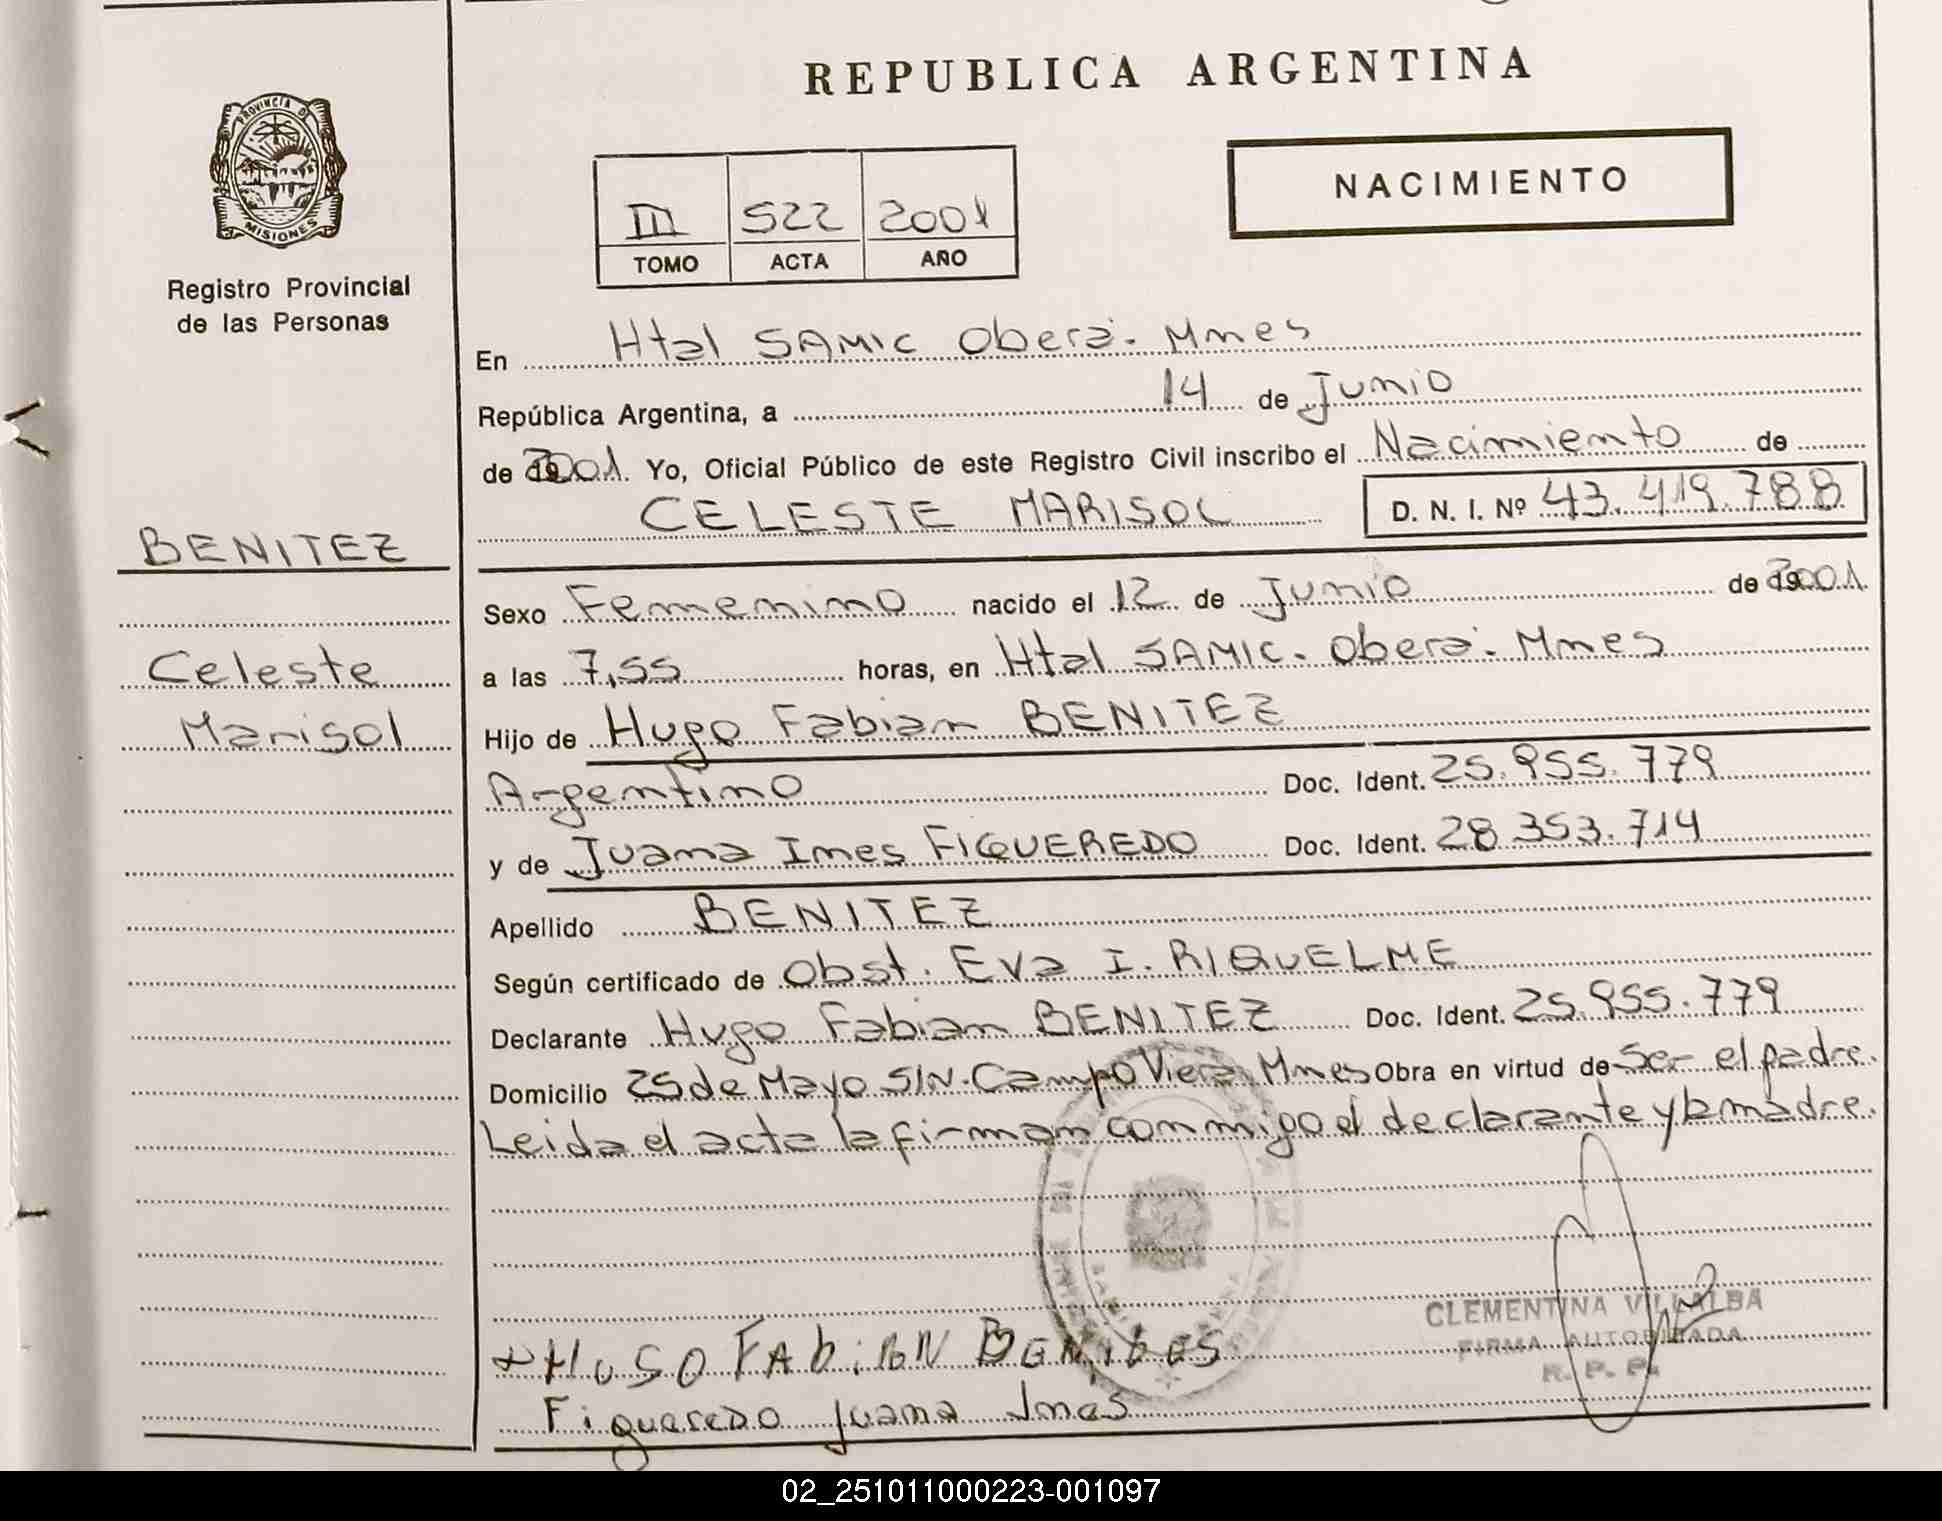 REPUBLICA ARGENTINA
PROVINCIA DE
MISIONES
Registro Provincial
de las Personas
NACIMIENTO
III 522 2001
TOMO ACTA AÑO
En Htal SAMIC Oberá. Mnes
República Argentina, a 14 de Junio
de 2001. Yo, Oficial Público de este Registro Civil inscribo el Nacimiento de
CELESTE MARISOL D. N. I. Nº 43.419.788
BENITEZ
Celeste
Marisol
Sexo Femenino nacido el 12 de Junio de 2001.
a las 7,55 horas, en Htal SAMIC. Oberá. Mnes
Hijo de Hugo Fabian BENITEZ
Argentino Doc. Ident. 25.955.779
y de Juana Ines FIGUEREDO Doc. Ident. 28.353.714
Apellido BENITEZ
Según certificado de Obst. Eva I. RIQUELME
Declarante Hugo Fabian BENITEZ Doc. Ident. 25.955.779
Domicilio 25 de Mayo S/N. Campo Viera Mnes Obra en virtud de Ser el padre.
Leida el acta la firman conmigo el declarante y la madre.
CLEMENTINA VILLALBA
FIRMA AUTORIZADA
R. P. P.
HUGO FABiAN BENiTES
Figueredo Juana Inés
02_251011000223-001097